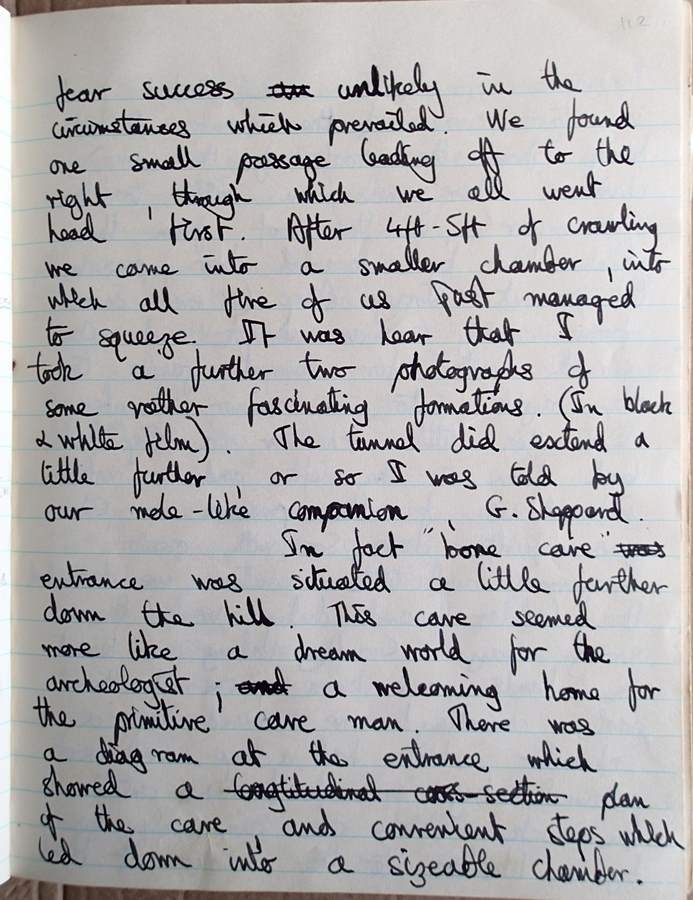 112
fear success unlikely in the
circumstanses which prevailed. We found
one small passage leading off to the
right, through which we all went
head first. After 4ft-5ft of crawling
we came into a smaller chamber, into
which all five of us just managed
to squeeze. It was hear that I
took a further two photographs of
some rather fascinating formations. (In black
& white film). The tunnel did extend a
little further, or so I was told by
our mole-like companion, G. Sheppard.
In fact "bone cave" was
entrance was situated a little further
down the hill. This cave seemed
more like a dream world for the
archeologist; and a welcoming home for
the primitive cave man. There was
a diagram at the entrance which
showed a longtitudinal cross-section plan
of the cave, and convenient steps which
led down into a sizeable chamber.